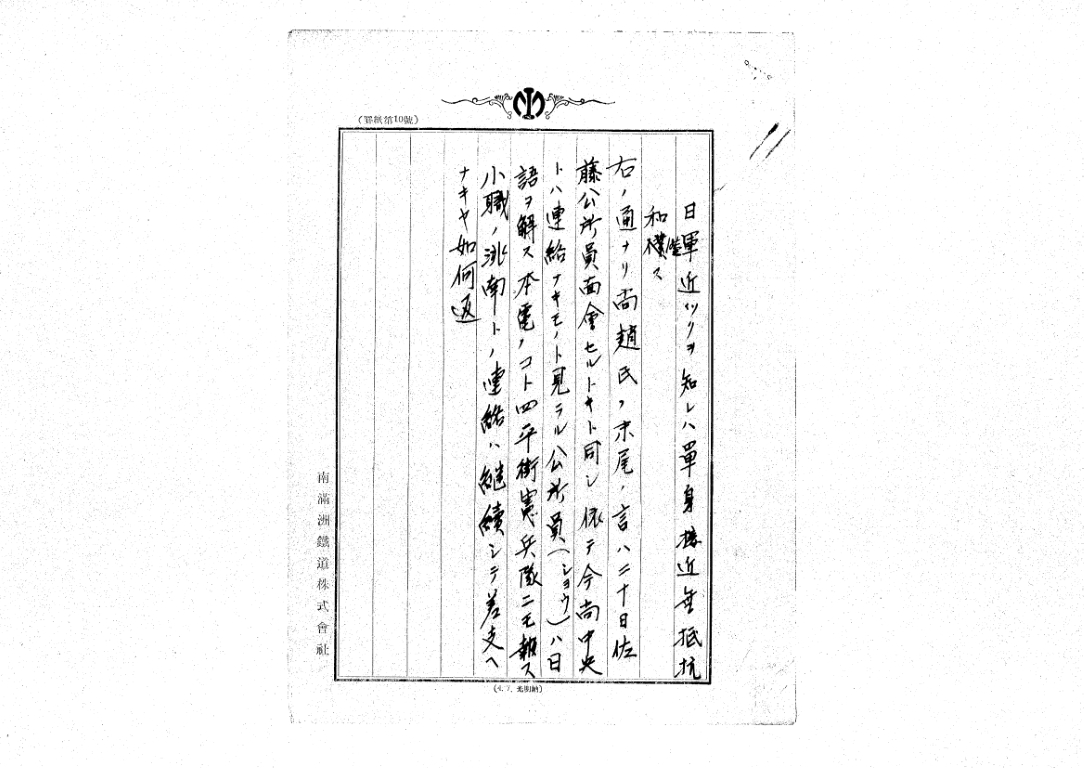 (罫紙第10號)
日軍近ツクヲ知レハ單身接近無抵抗
和儀ス
右ノ通ナリ尚趙氏ノ末尾ノ言ハ二十日佐
藤公所員面會セルトキト同シ依テ今尚中央
トハ連絡ナキモノト見ラル公所員(ショウ)ハ日
語ヲ解ス本電ノコト四平街憲兵隊ニモ報ス
小職ノ洮南トノ連絡ハ継續シテ差支ヘ
ナキヤ如何返
南滿洲鐵道株式會社